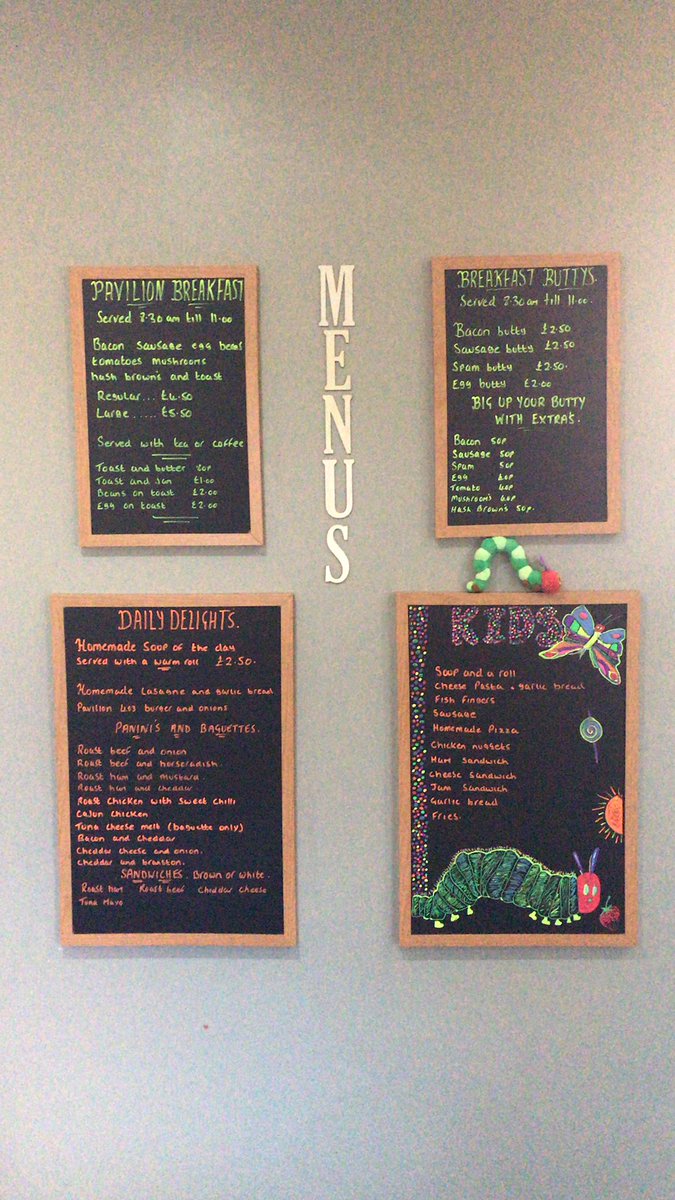 PAVILION BREAKFAST
Served 8.30 am till 11.00
Bacon Sausage egg beans
tomatoes mushrooms
hash brown's and toast
Regular... £4.50
Large ..... £5.50
Served with tea or coffee
Toast and butter 80p
Toast and Jam £1.00
Beans on toast £2.00
Egg on toast £2.00
MENUS
BREAKFAST BUTTYS.
Served 8.30am till 11.00.
Bacon butty £2.50
Sausage butty £2.50
Spam butty £2.50.
Egg butty £2.00
BIG UP YOUR BUTTY
WITH EXTRA'S.
Bacon 50p
Sausage 50p
Spam 50p
Egg 40p
Tomato 40p
Mushrooms 40p
Hash Brown's 50p.
DAILY DELIGHTS.
Homemade Soup of the day
Served with a warm roll £2.50.
Homemade Lasagne and garlic bread
Pavilion burger and onions
PANINI'S AND BAGUETTES.
Roast beef and onion
Roast beef and horseradish.
Roast ham and mustard
Roast ham and cheddar
Roast Chicken with Sweet chilli
Cajun Chicken
Tuna cheese melt (baguette only)
Bacon and cheddar
Cheddar cheese and onion.
Cheddar and branston.
SANDWICHES. Brown or white.
Roast ham Roast beef Cheddar cheese
Tuna Mayo
KIDS
Soup and a roll
Cheese Pasta + garlic bread
Fish Fingers
Sausage
Homemade Pizza
Chicken nuggets
Ham Sandwich
Cheese Sandwich
Jam Sandwich
Garlic bread
Fries.